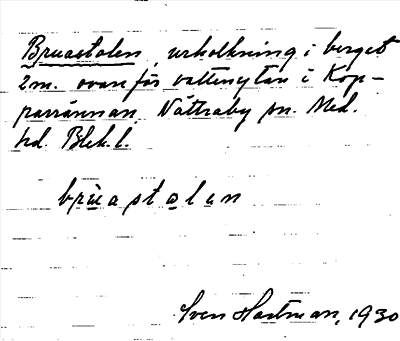 Brueastolen, urholkning i berget
2m. ovanför vattenytan i Kop-
parrännan, Nättraby sn. Med.
hd. Blek. l.
brùastolen
Sven Hartman, 1930